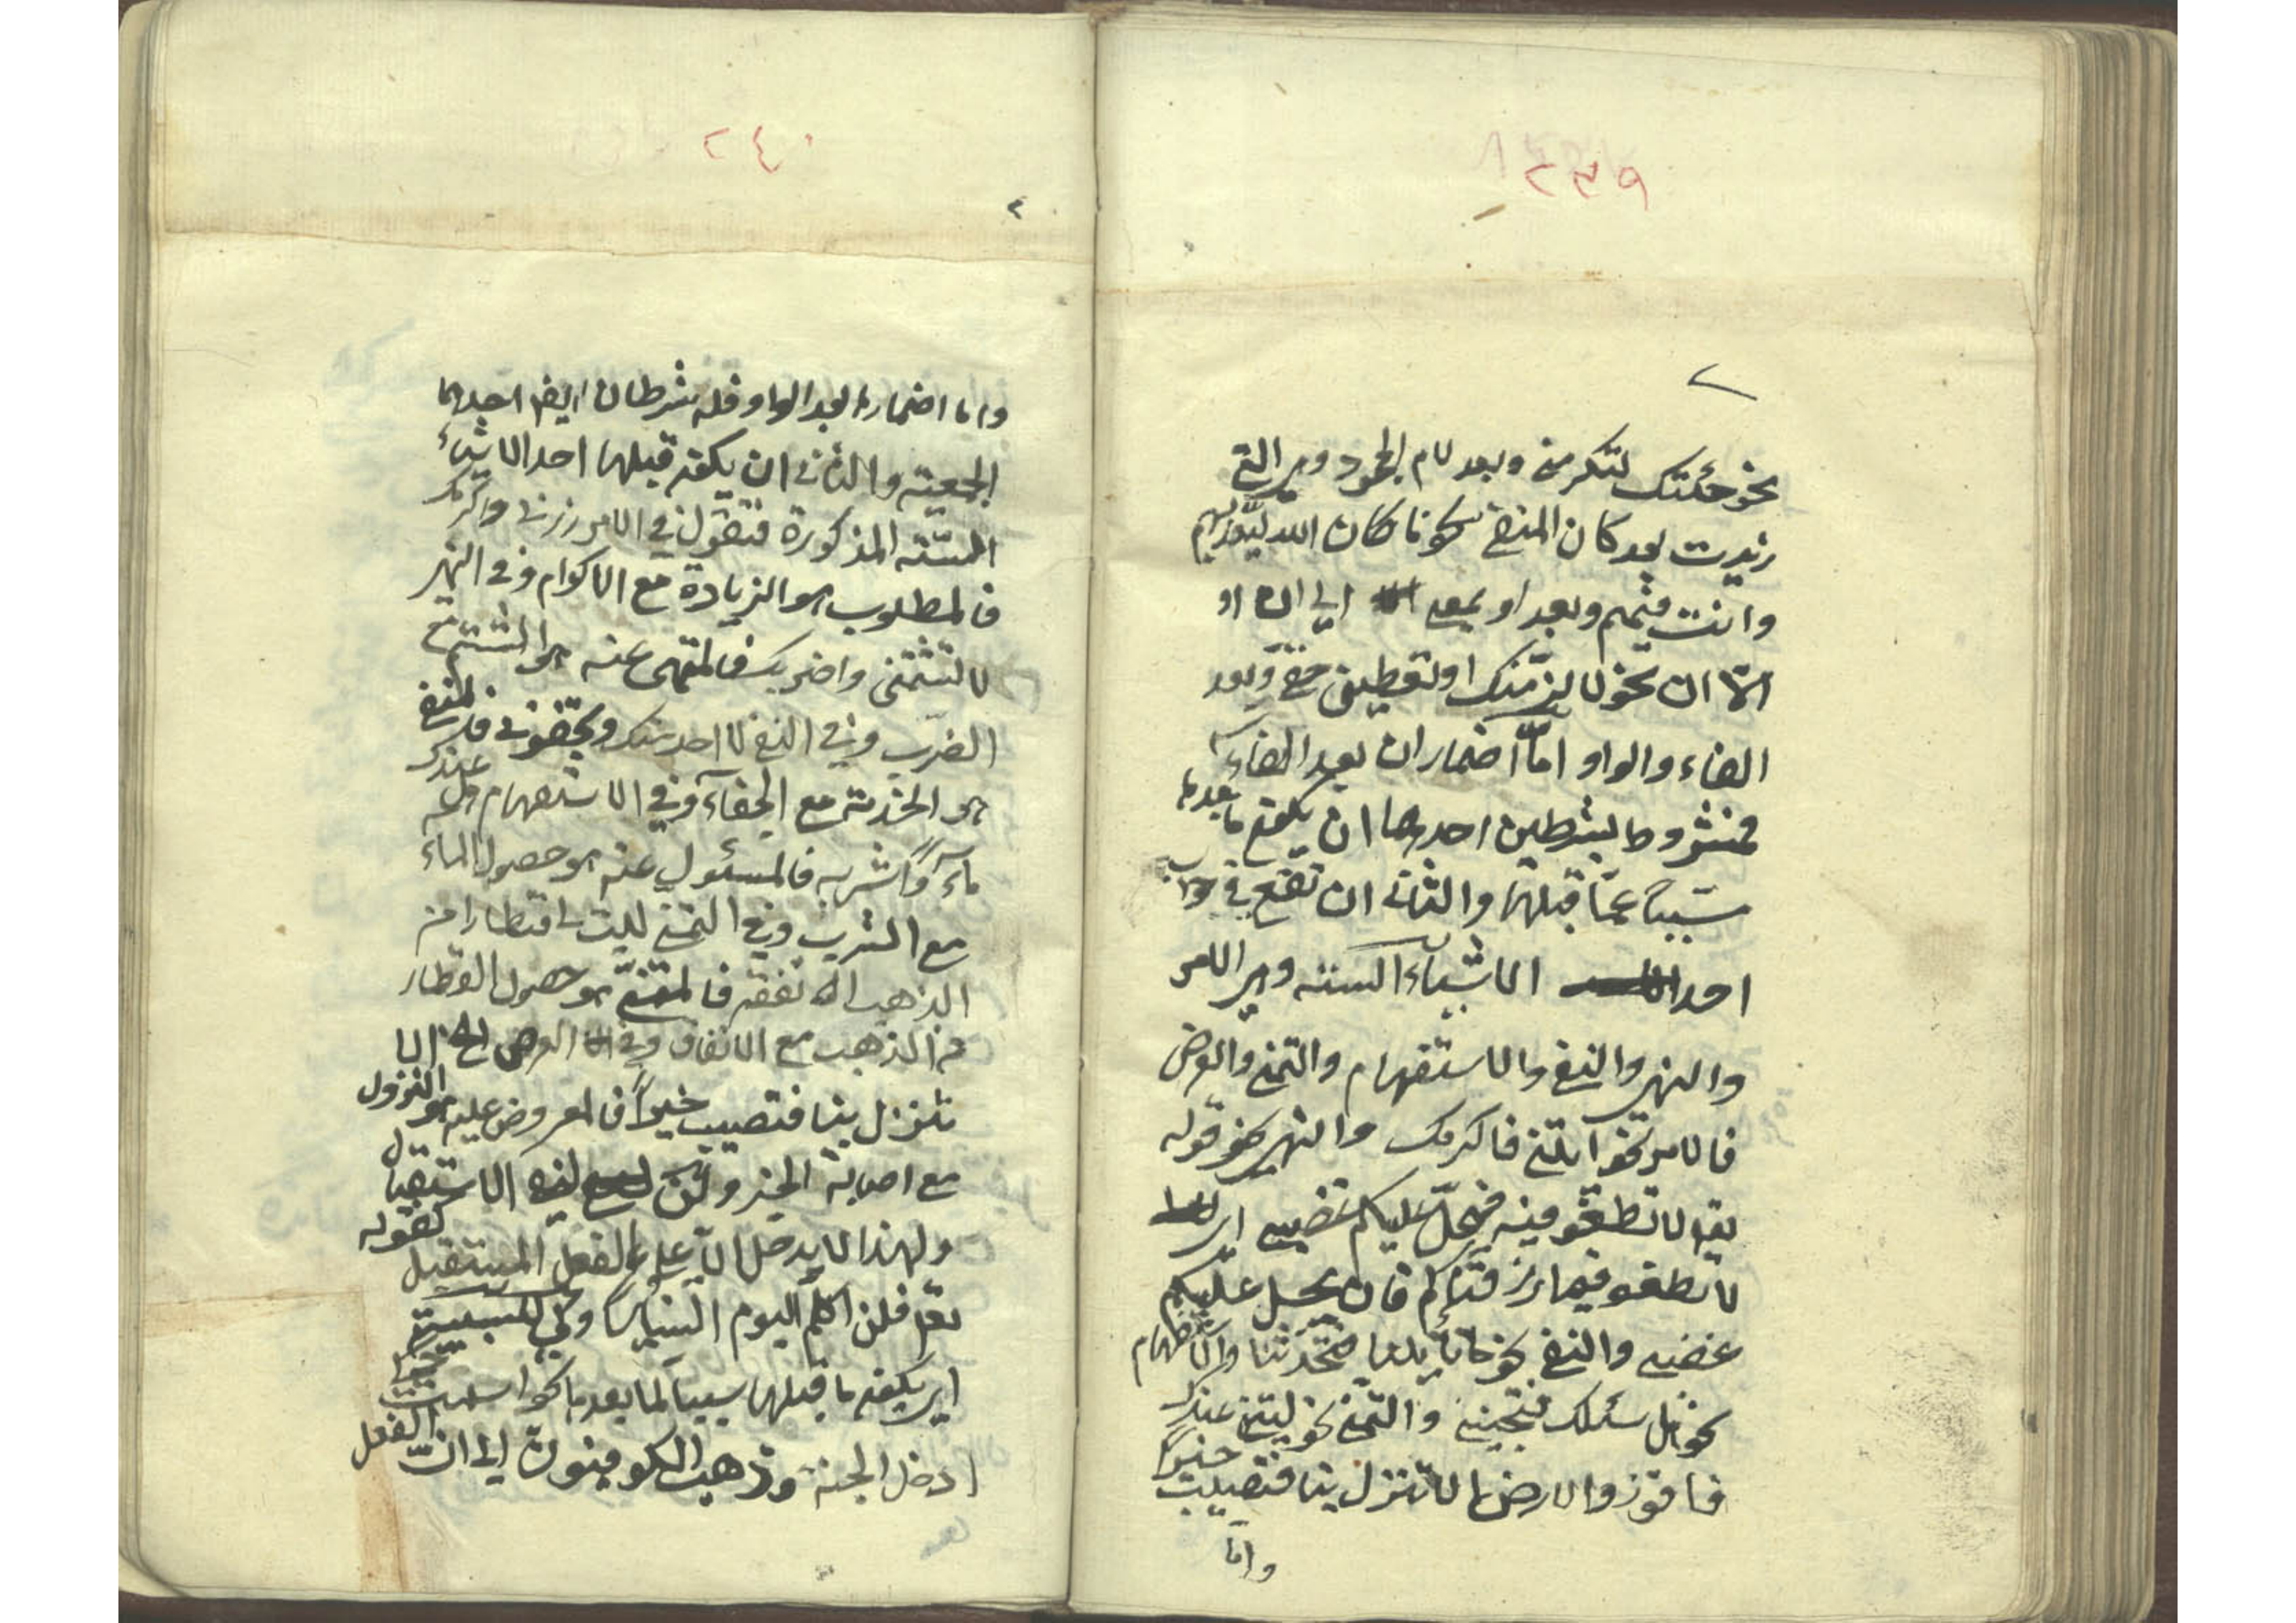 ٢٣٩
نحو جئتك لتكرمني وبعد لام الجحود وهي التي
زيدت بعد كان المنفي كونا كان الله ليعذبهم
وانت فيهم وبعد او بمعنى الى ان او
الّا ان نحو لالزمنك او تعطيني حقي وبعد
الفاء والواو امّا اضمار ان بعد الفاء
فمشروط بشرطين احدهما ان يكون ما بعدها
سبباً عمّا قبلها والثاني ان تقع في جواب
احد الاشياء الستة وهي الامر
والنهي والنفي والاستفهام والتمني والعرض
فالامر نحو آيتني فاكرمك والنهي نحو قوله
تعا لا تطغو فيه فيحلّ عليكم غضبي اي
لا تطغو فيما رزقناكم فان يحل عليكم
غضبي والنفي نحو ما تأتينا فتحدثنا والاستفهام
نحو هل اسئلك فتجيبني والتمني نحو ليتني عندك
فافوز والارض الا تنزل بنا فتصيب خيراً
وامّا
٢٤٠
٢
واما اضمارها بعد الواو فله شرطان ايضا احدهما
الجمعية والثاني ان يكون قبلها احد الاشياء
الستة المذكورة فتقول في الامر زرني واكرمك
فالمطلوب هو الزيادة مع الاكرام وفي النهي
لا تشتمني واضربك فالمنهي عنه هو الشتم مع
الضرب وفي النفي لا احدثك وتجفوني فالمنفي
هو الحديث مع الجفاء وفي الاستفهام هل عندك
ماءً واشربه فالمسئول عنه هو حصول الماء
مع الشرب وفي التمني ليت لي قنطارا من
الذهب انفقه فالمتمنى هو حصول القنطار
من الذهب مع الانفاق وفي العرض نحو الا
تنزل بنا فتصيب خيراً فالمعروض عليه هو النزول
مع اصابة الخير ولن لنفي الاستقبال
ولهذا لا يدخل الّا على الفعل المستقبل كقوله
تعا فلن اكلم اليوم انسيا وكي للسببية
اي يكون ما قبلها سببا لما بعدها نحو اسلمت كي
ادخل الجنة وذهب الكوفيون الى ان الفعل